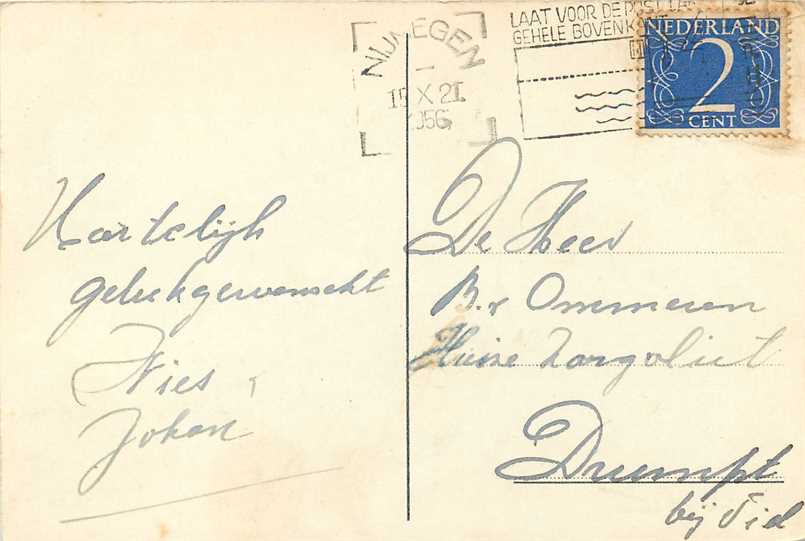 Hartelijk
gelukgewenscht
Nies,
Johan
NIJMEGEN
15 X 21
1956
LAAT VOOR DE POST
GEHELE BOVENKANT
NEDERLAND
2
CENT
De Heer
B. v Ommeren
Huize Zorgvliet
Drumpt
bij Tiel